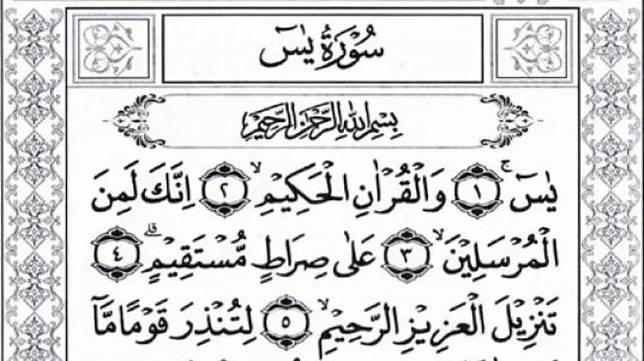 سُوْرَةُ يٰسٓ
بِسْمِ اللهِ الرَّحْمٰنِ الرَّحِيْمِ
يٰسٓ ۚ ﴿١﴾ وَالْقُرْاٰنِ الْحَكِيْمِ ۙ ﴿٢﴾ اِنَّكَ لَمِنَ
الْمُرْسَلِيْنَ ۙ ﴿٣﴾ عَلٰى صِرَاطٍ مُّسْتَقِيْمٍ ۗ ﴿٤﴾
تَنْزِيْلَ الْعَزِيْزِ الرَّحِيْمِ ۙ ﴿٥﴾ لِتُنْذِرَ قَوْمًا مَّآ